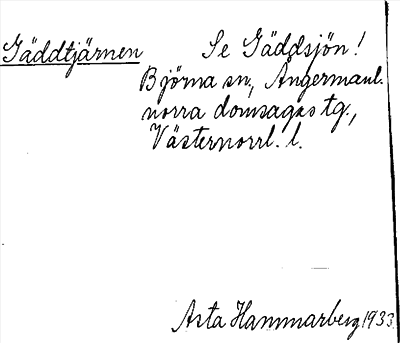 Gäddtjärnen Se Gäddsjön!
Björna sn., Ångermanl.
norra domsagas tg.,
Västernorrl. l.
Asta Hammarberg 1933.